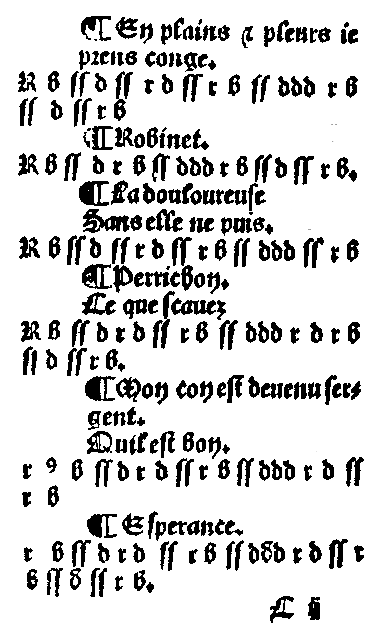 ¶ En plains ⁊ pleurs ie
prens conge.
R b ſſ d ſſ r d ſſ r b ſſ ddd r b
ſſ d ſſ r b
¶ Robinet.
R b ſſ d r b ſſ ddd r b ſſ d ſſ r b.
¶ La douloureuſe
Sans elle ne puis.
R b ſſ d ſſ r d ſſ r b ſſ ddd ſſ r b
¶ Perrichon.
Ce que ſcauez
R b ſſ d r d ſſ r b ſſ ddd r d r b
ſſ d ſſ r b.
¶ Mon con eſt deuenu ſer⸗
gent.
Quil eſt bon.
r 9 b ſſ d r d ſſ r b ſſ ddd r d ſſ
r b
¶ Eſperance.
r b ſſ d r d ſſ r b ſſ ddd r d ſſ r
b ſſ d ſſ r b.
C ij